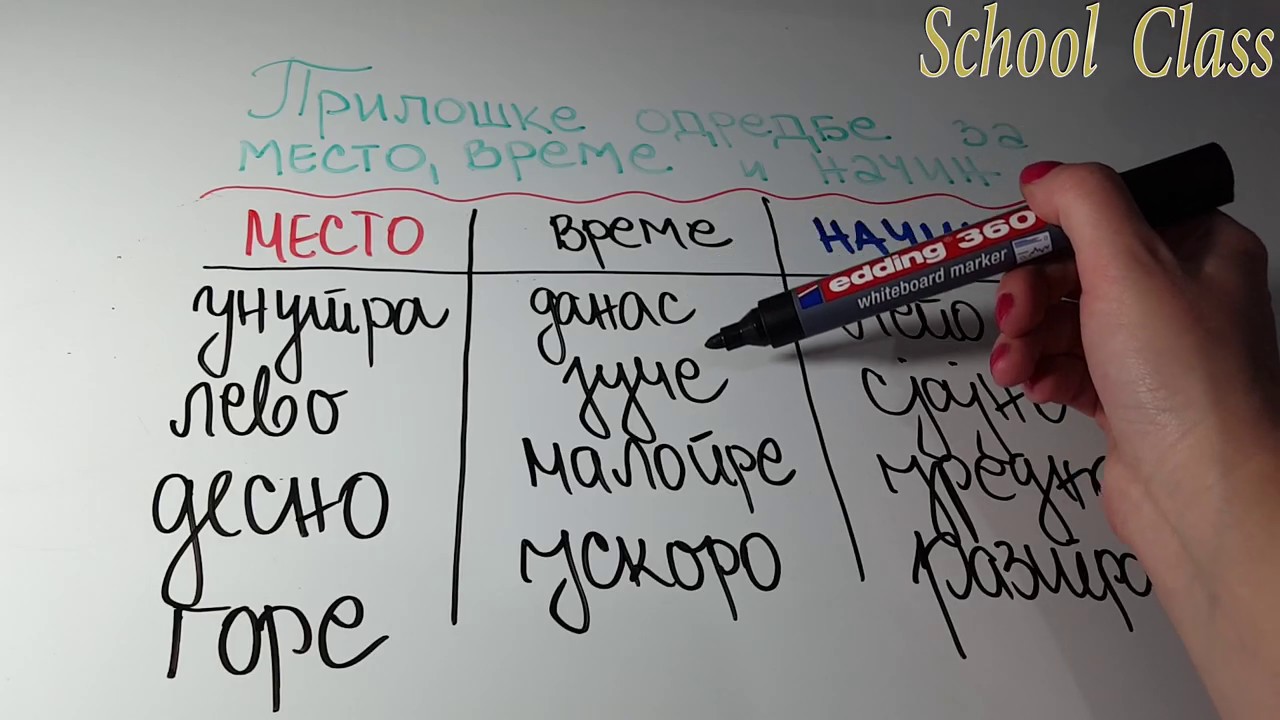 School Class
Прилошке одредбе за
место, време и начин
МЕСТО време
унутра данас лепо
лево јуче
десно малопре
горе ускоро
edding 360
whiteboard marker